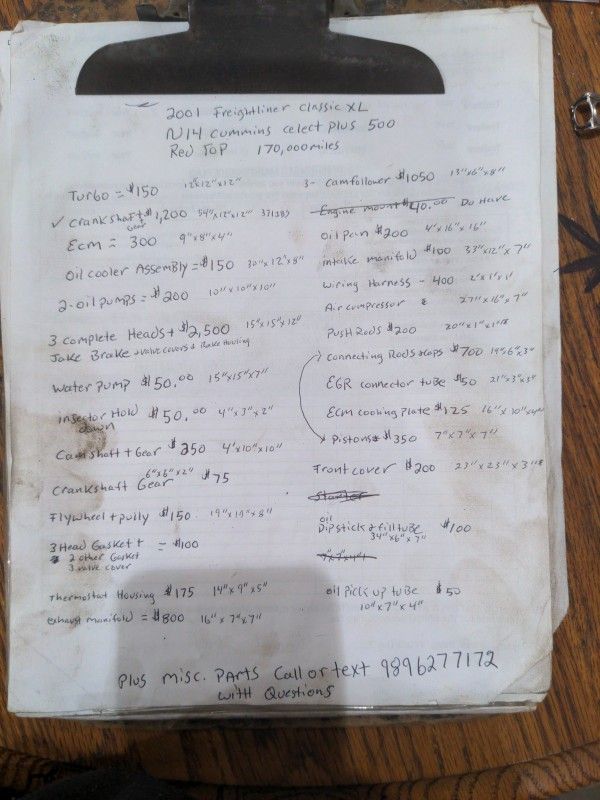 2001 Freightliner Classic XL
N14 cummins celect plus 500
Red Top 170,000miles
Turbo = $150 12"x12"x12"
✓ Crankshaft + Gear $1,200 54"x12"x12"
Ecm = 300 9"x8"x4"
Oil cooler Assembly = $150 30"x12"x8"
2-oil pumps = $200 10"x10"x10"
3 complete Heads + $2,500 15"x15"x12"
Jake Brake + valve covers + Brake Housing
Water pump $50.00 15"x15"x7"
injector Hold down $50.00 4"x3"x2"
Camshaft + Gear $250 4'x10"x10"
Crankshaft Gear 6"x6"x2" $75
Flywheel + pully $150 19"x19"x8"
3 Head Gasket + = $100
2 other Gasket
3 valve cover
Thermostat Housing $175 14"x9"x5"
exhaust manifold = $800 16"x7"x7"
3- Camfollower $1050 13"x6"x8"
Engine mount $40.00 Do Have
oil pan $200 4'x16"x16"
intake manifold $100 33"x12"x7"
Wiring Harness - 400 2'x1'x1'
Air compressor 27"x16"x7"
Push Rods $200 20"x1"x1"
Connecting Rods + caps $700 14"x6"x3"
EGR connector tube $50 21"x3"x3"
ECM cooling plate $125 16"x10"x4"
Pistons $350 7"x7"x7"
Front cover $200 23"x23"x3"
Starter
oil
Dipstick & fill tube $100
34"x6"x7"
oil pick up tube $50
10"x7"x4"
Plus misc. Parts Call or text 9896277172
with Questions